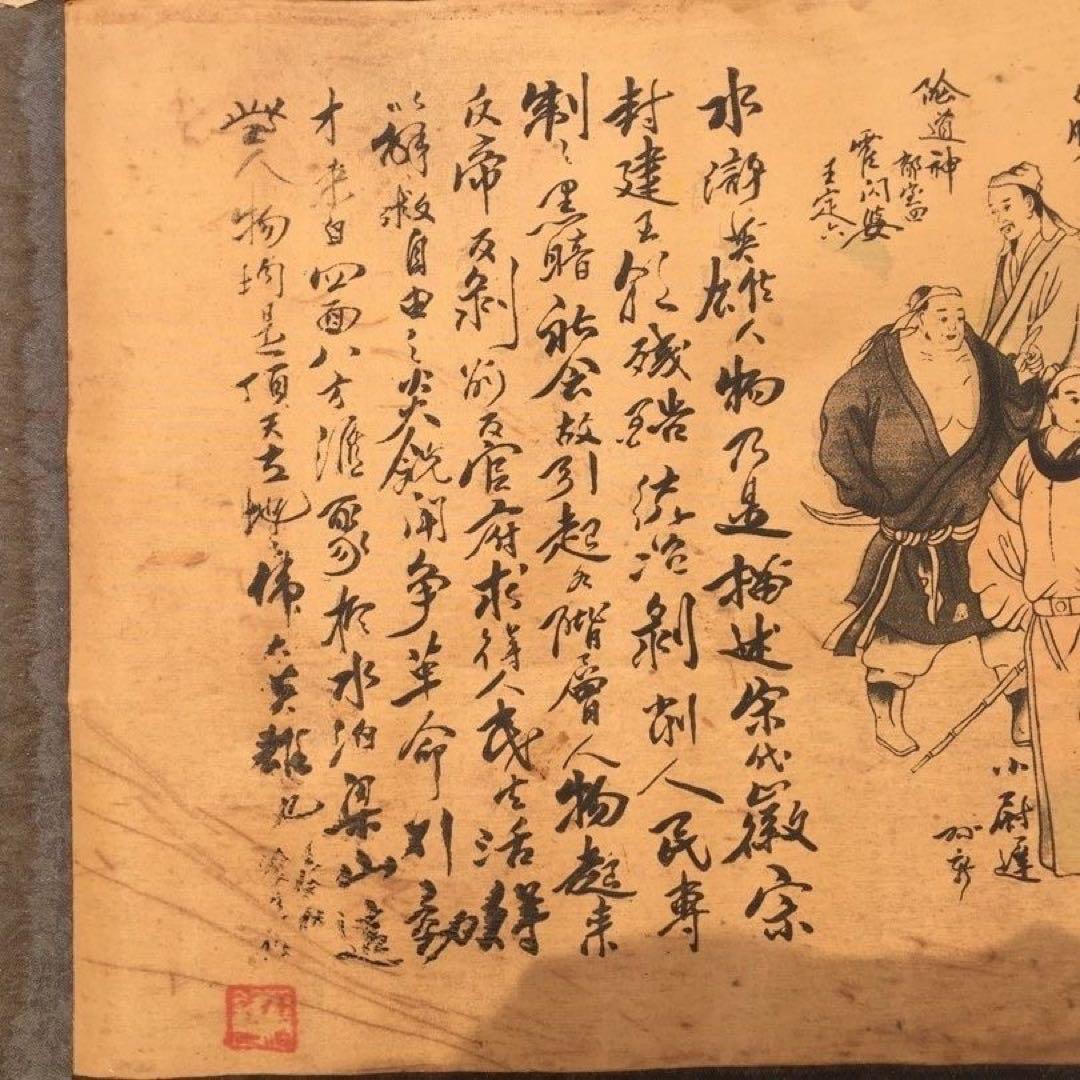 險道神
郁保四
霍闪婆
王定六
小尉遲
孙新
水滸英雄人物乃是描述宋代徽宗
封建王朝残酷統治剝削人民専
制之黑暗社会故引起各階層人物起来
反帝反剝削反官府求得人民生活得
以解救自由之火炎銳闹争革命行動
才来自四面八方滙聚於水泊梁山這
些人物均是頂天立地偉大英雄也